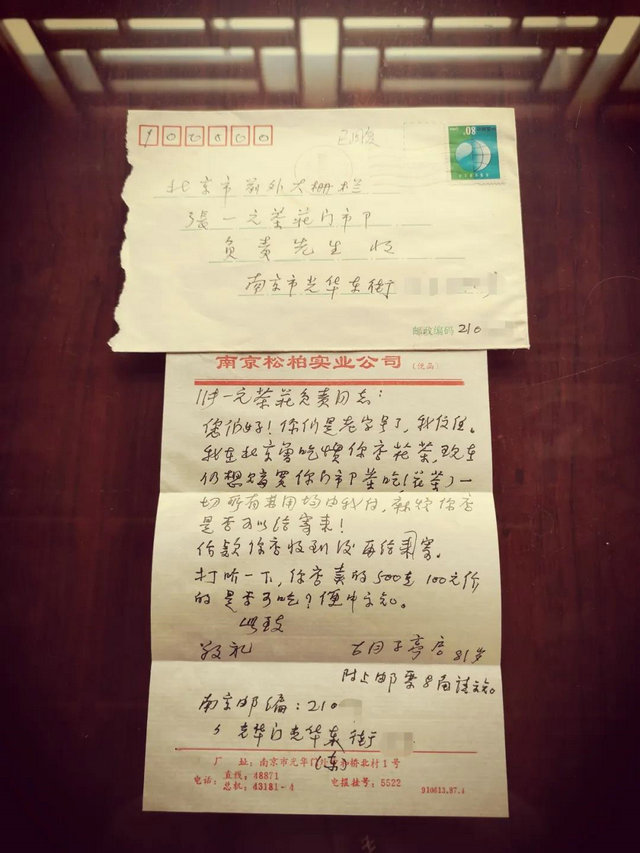 100000
北京市前外大栅栏
張一元茶莊门市部
负责先生 收
南京市光华东街
邮政编码 210
南京松柏实业公司 (便函)
张一元茶莊负责同志：
您们好！你们是老字号了，我信任。
我在北京曾吃惯你店花茶，现在
仍想购买你门市卩茶吃(花茶)一
切所有费用均由我付，
是否可以给寄来！
价款你店收到后再给寄。
打听一下，你店卖的500克100元价
的是否可吃？便中示知。
此致
敬礼
81岁
附上邮票8角请示知。
南京邮编：210
光华门光华东街
(东)
厂 址：南京市光华门外 桥北村1号
电话：直线：48871
总机：43181-4
电报挂号：5522
910613.87.4